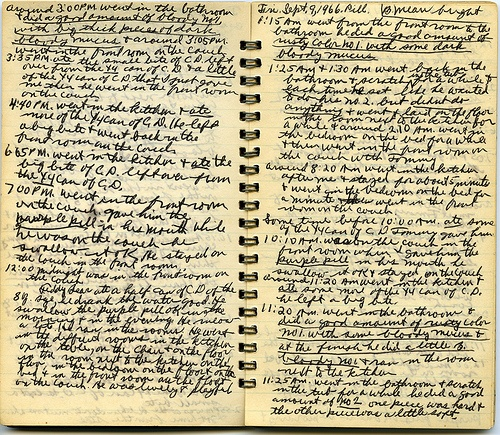 around 3:00 P.M. went in the bathroom
+ did a good amount of bloody no 1
with big thick pieces of dark
bloody mucus + around 3:05 P.M.
went in the front room on the couch
3:35 P.M. ate the small bite of C.D. left
over from the 1/4 can of C.D. + ate little
of the 1/4 can of C.D. that I just gave
him then he went in the front room
on the couch
4:40 P.M. went in the kitchen + ate
more of the 1/4 can of C.D. He left
a big bite + went back in the
front room on the couch
6:45 P.M. went in the kitchen + ate the
big bite of C.D. left over from
the 1/4 can of C.D.
7:00 P.M. went in the front room
on the couch gave him the
purple pill in his mouth while
he was on the couch he
swallow it OK He stayed on
the couch in the front room
12:00 midnight was in the front room on
the couch
ate a half can of C.D. of the
drank the water good He
swallow the purple pill OK in the
in the evening he meow
a lot he ran in the rooms He went
in the
on the table, on the chair on the floor
in the room next to the kitchen on the
floor in the bedroom on the floor on the
bed + in the front room on the floor
on the couch He was lively + playful
Fri. Sept. 9, 1966. Pill. B mean bright
8:15 A.m went from the front room to the
bathroom he did a good amount of
rusty color no 1. with some dark
bloody mucus
1:25 A.m + 1:30 A.m went back in the
bathroom + scratch in the a while +
each time he act like he wanted
to do his no 2. but didnt do
anything + went + laid on the floor
in the room next to the kitchen for
a while + around 2:10 A.m. went in
the bedroom on the bed for a while
+ then went in the front room on
the couch with Tommy
around 8:20 A.m went in the kitchen
after me + stayed for about 5 minutes
+ went in the bedroom on the bed for
a minute then went in the front
room on the couch
Some time before 10:00 A.m. ate some
of the 1/4 can of C.D Tommy gave him
10:10 A.m was on the couch in the
front room while I gave him the
purple pill in his mouth he
swallow it OK + stayed on the couch
around 11:20 A.m went in the kitchen +
ate some more of the 1/4 can of C.D.
he left a big bite
11:20 A.m. went in the bathroom +
did a good amount of rusty color
no 1. with some bloody mucus +
at the finish he did a little B.
bloody no 1 + ran in the room
next to the kitchen
11:25 A.m. went in the bathroom + scratch
in the tub for a while he did a good
amount of no 2 one piece was hard +
the other piece was a little soft